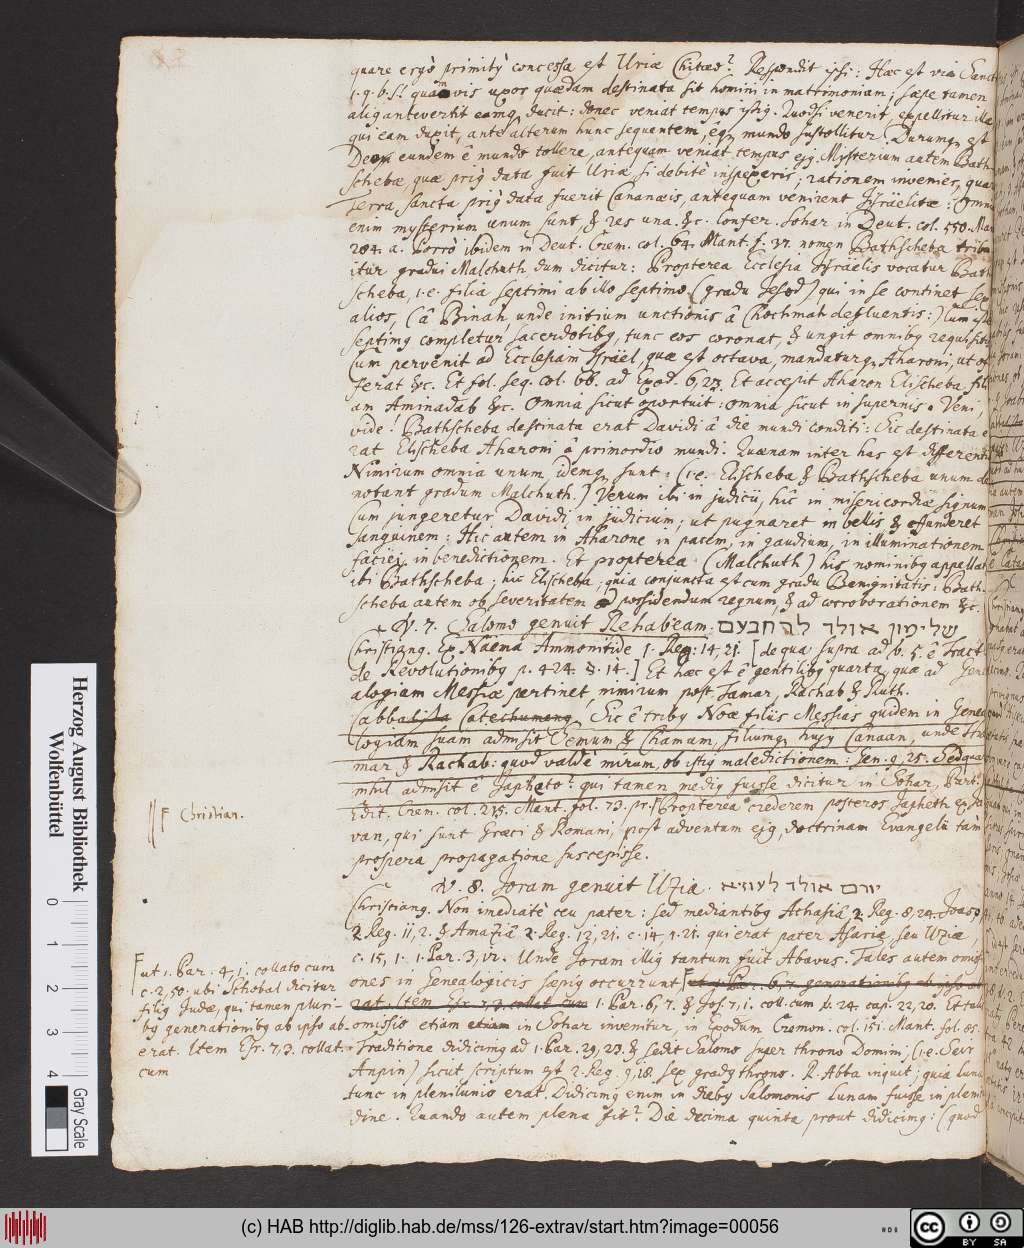 quare ergò primitùs concessa est Uriæ Chitæo? Respondit ipsi: Hæc est via Sancti
quamvis uxor quædam destinata sit homini in matrimonium; sæpe tamen
antevertit eamq, ducit: donec veniat tempus istiq. Quodsi venerit, expellitur ille
qui eam duxit, ante alterum hunc sequentem, eq, mundo sustollitur. Durumq, est
Deo eundem è mundo tollere, antequam veniat tempus ejq. Mysterium autem Bath
schebæ, quæ priq data fuit Uriæ, si debitè inspexeris; rationem invenies, quare
Terra, sancta priq data fuerit Cananæis, antequam venirent Israelitæ: Omnia
enim mysterium unum sunt, & res una. &c. Confer. Sohar in Deut. col. 550. Man
284. a. Porrò ibidem in Deut. Crem. col. 64. Mant. f. 37. nomen Bathscheba tribu
itur gradui Malchuth dum dicitur: Propterea Ecclesia Israëlis vocatur Bath
scheba, i.e. filia septimi ab illo septimo (gradu Jesod) qui in se continet sex
alios, (â Binah, unde initium unctionis â Chochmah defluentis:) Cum iste
septimq completur sacerdotibq, tunc eos coronat, & ungit omnibq requisitis
Cum pervenit ad Ecclesiam Israel, quæ est octava, mandaturq, Aharoni, ut of
ferat &c. Et fol. seq. col. 66. ad Exod. 6, 23. Et accepit Aharon Elischeba fili
am Aminadab &c. Omnia sicut oportuit: omnia sicut in supernis. Veni,
vide! Bathscheba destinata erat Davidi â die mundi conditi: Sic destinata e
rat Elischeba Aharoni â primordio mundi. Quænam inter has est differentia
Nimirum omnia unum, idemq, sunt: (i.e. Elischeba & Bathscheba unum de
notant gradum Malchuth.) Verum ibi in judicii, hîc in misericordiæ signum
Cum jungeretur Davidi, in judicium; ut pugnaret in bellis & effunderet
sanguinem: Hic autem in Aharone in pacem, in gaudium, in illuminationem
faciei, in benedictionem. Et propterea (Malchuth) his nominibq appellat
ibi Bathscheba; hic Elischeba; quia conjuncta est cum gradu Benignitatis: Bath
scheba autem ob severitatem ad possidendum regnum, & ad corroborationem &c.
V. 7. Salomo genuit Rehabeam. שלימון אולד לרחבעם
Christianq. Ex Naema Ammonitide 1. Reg: 14, 21. [de qua supra ad v. 5. è Tract
de Revolutionibq p. 424. §. 14.] Et hæc est è gentilibq quarta, quæ ad Gene
alogiam Messiæ pertinet, nimirum post Tamar, Rachab & Ruth.
Cabbalista Catechumenq. Sic è tribq Noæ filiis Messias quidem in Genea
logiam suam admisit Semum & Chamum, filiumq, hujq Canaan, unde Tha
mar & Rachab: quod valdè mirum, ob istiq maledictionem: Gen. 9, 25. Sed qua
nihil admisit è Japheto? qui tamen mediq fuisse dicitur in Sohar, Part. 1
Edit. Crem. col. 275. Mant. fol. 73. pr. Propterea crederem posteros Japheth ex Ja
van, qui sunt Græci & Romani, post adventum ejq, doctrinam Evangelii tàm
prospera propagatione suscepisse.
Christian.
V. 8. Joram genuit Uziæ. יורם אולד לעוזיא
Christianq. Non imediatè ceu pater: sed mediantibq Achasiâ, 2. Reg. 8, 24. Joas
2. Reg. 11, 2. & Amaziâ 2. Reg. 12, 21. c. 14, 1. 21. qui erat pater Asariæ, seu Uziæ,
c. 15, 1. 1. Par. 3, 12. Unde Joram illiq tantum fuit Abavus. Tales autem omissi
ones in Genealogicis sæpiq occurrunt ut 1. Par. 6, 7. generationibq ab ipso ab
erat. Item Esr. 7, 3. collat. cum 1. Par. 6, 7. & Jos. 7, 1. coll. cum v. 24. cap. 22, 20. Et talis
omissio etiam etiam in Sohar invenitur, in Exodum Cremon. col. 151. Mant. fol. 85.
Traditione didicimq ad 1. Par. 29, 23. & sedit Salomo super throno Domini, (i.e. Seir
Anpin) sicut scriptum est 2. Reg. 9, 18. sex gradq throno. R. Abba inquit; quia Luna
tunc in plenilunio erat. Didicimq enim in diebq Salomonis Lunam fuisse in pleni
dine. Quando autem plena sit? Die decima quinta prout didicimq: (quod
ut 1. Par. 4, 1. collato cum
c. 2, 50. ubi Schobal dicitur
filiq Judæ, qui tamen pluri-
bq generationibq ab ipso ab
erat. Item Esr. 7, 3. collat.
cum
Herzog August Bibliothek
Wolfenbüttel
0 1 2 3 4
Gray Scale
(c) HAB http://diglib.hab.de/mss/126-extrav/start.htm?image=00056
cc BY SA